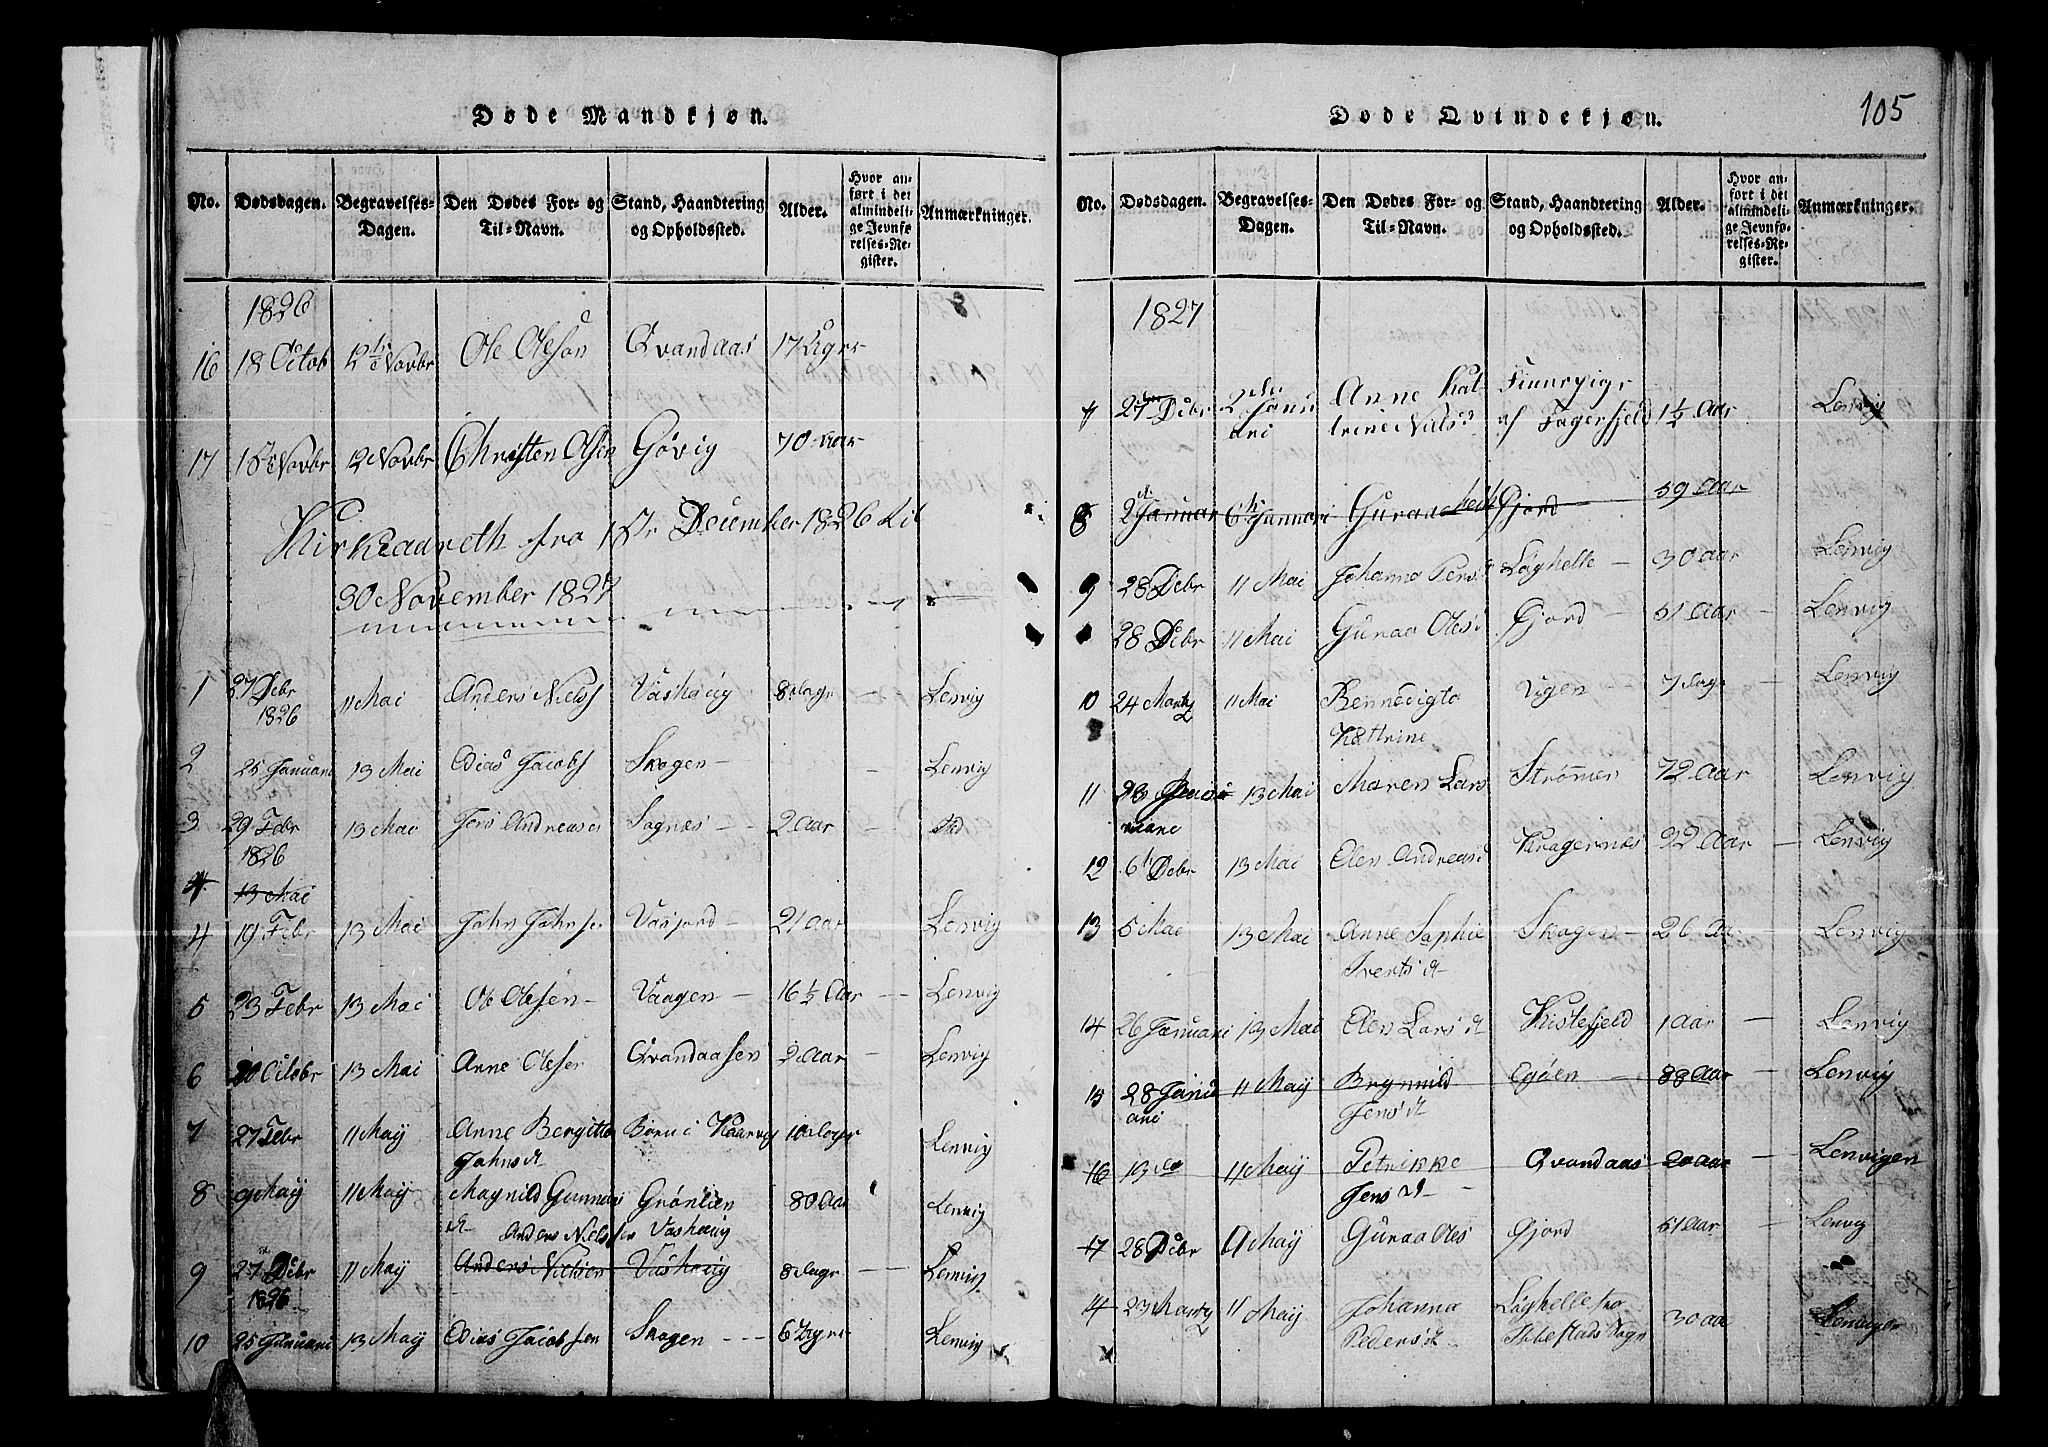 Døde Mandkjøn.
No. Dødsdagen. Begravelses-Dagen. Den Dødes For- og Til-Navn. Stand, Haandtering og Opholdssted. Alder. Hvor anført i det almindelige Jevnførelses-Register. Anmærkninger.
1826
16 18 Octob 12te Novbr Ole Olesøn Qvandaas 17 Uger
17 1ste Novbr 12 Novbr Christen Olsen Gövig 70 Aar
Kirkeaareth fra 1ste December 1826 til
30 November 1827
1 27 Debr 11 Mai Anders Niels Vashaug 8 Dage — Lenvig
1826
2 25 Januari 13 Mai Edias Jacobs Skogen — Lenvig
3 29 Febr 13 Mai Jens Andreas Sagnæs 2 Aar
1826
4 13 Mai
4 19 Febr 13 Mai John Johnsen Vasjord — 21 Aar Lenvig
5 23 Febr 13 Mai Ole Olesen — Vaagen — 16 1/2 Aar — Lenvig
6 20 Octobr 13 Mai Arne Olesen Qvandaasen 2 Aar — Lenvig
7 27 Febr 11 Maij Anne Bergitta Born i Kaarvig 10 Dager Lenvig
Johns d
8 9 Maij 11 Maij Magnild Gunnari Grönlien 80 Aar Lenvig
d— Anders Nielssen Vashaug
9 27 Debr 11 Maij Anders Nielsen Vashaug 8 Dage — Lenvig
1826
10 25 Januari 13 Maij Edias Jacobsen Skogen — 6 Uger Lenvig
Døde Qvindekjøn.
105
No. Dødsdagen. Begravelses-Dagen. Den Dødes For- og Til-Navn. Stand, Haandtering og Opholdssted. Alder. Hvor anført i det almindelige Jevnførelses-Register. Anmærkninger.
1827
7 27 Debr 2den Janu Anne Kat- Finnepige
ari trine Niels d af Fagerfjeld 1 1/2 Aar Lenvig
8 2 Januar 6te Januari Guraa Gjord 59 Aar
9 28 Debr 11 Mai Johanna Pers d Löghelle — 30 Aar Lenvig
28 Debr 11 Mai Guraa Oles d Gjord — 51 Aar — Lenvig
10 24 Martz 11 Mai Bennedigta Vigen — 7 Dage — Lenvig
Kattrine
11 28 Janu 13 Mai Maren Lars Strömmen 72 Aar Lenvig
12 6te Debr 13 Mai Elen Andreas d Kragernæs 92 Aar — Lenvig
13 5 Mai 13 Mai Anne Saphie Skogen — 26 Aar — Lenvig
Iverts d
14 26 Januari 13 Mai Elen Lars d Kistefjeld 1 Aar — Lenvig
15 28 Janu 11 Maij Brynnild Egöen — 88 Aar — Lenvig
ari Jens d
16 13 do 11 Maij Petrikke Qvandaas 20 Aar — Lenvigen
Jens d —
17 28 Debr 11 Maij Guraa Oles Gjord 51 Aar — Lenvig
14 23 Martz 11 Maij Johanna Löghelle fra 30 Aar Lenvigen
Peders d — Ibbestads Sogn